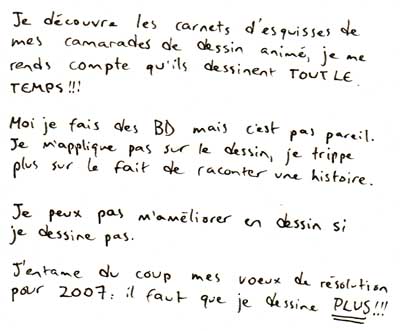 Je découvre les carnets d'esquisses de
mes camarades de dessin animé, je me
rends compte qu'ils dessinent TOUT LE
TEMPS!!!
Moi je fais des BD mais c'est pas pareil.
Je m'applique pas sur le dessin, je trippe
plus sur le fait de raconter une histoire.
Je peux pas m'améliorer en dessin si
je dessine pas.
J'entame du coup mes voeux de résolution
pour 2007: il faut que je dessine PLUS!!!